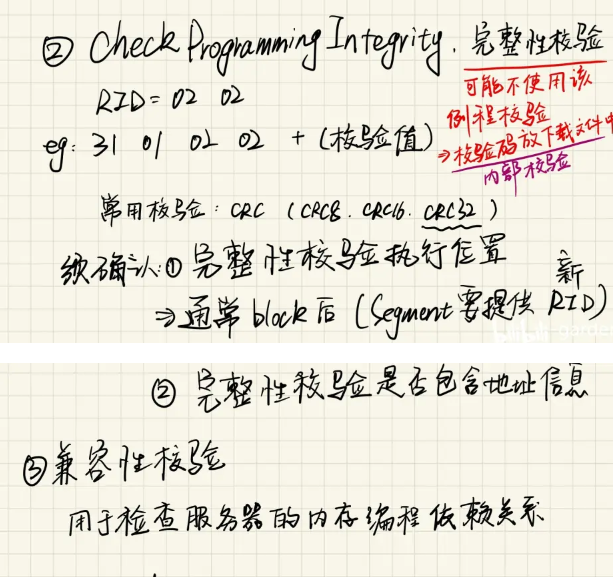 ② Check Programming Integrity. 完整性校验
RID = 02 02
可能不使用该
例程校验
eg: 31 01 02 02 + (校验值)
⇒校验码放下载文件中
内部校验
常用校验: CRC (CRC8. CRC16. CRC32)
须确认:① 完整性校验执行位置
新
⇒通常 block 后 (Segment要提供 RID)
② 完整性校验是否包含地址信息
③兼容性校验
用于检查服务器的内存编程依赖关系